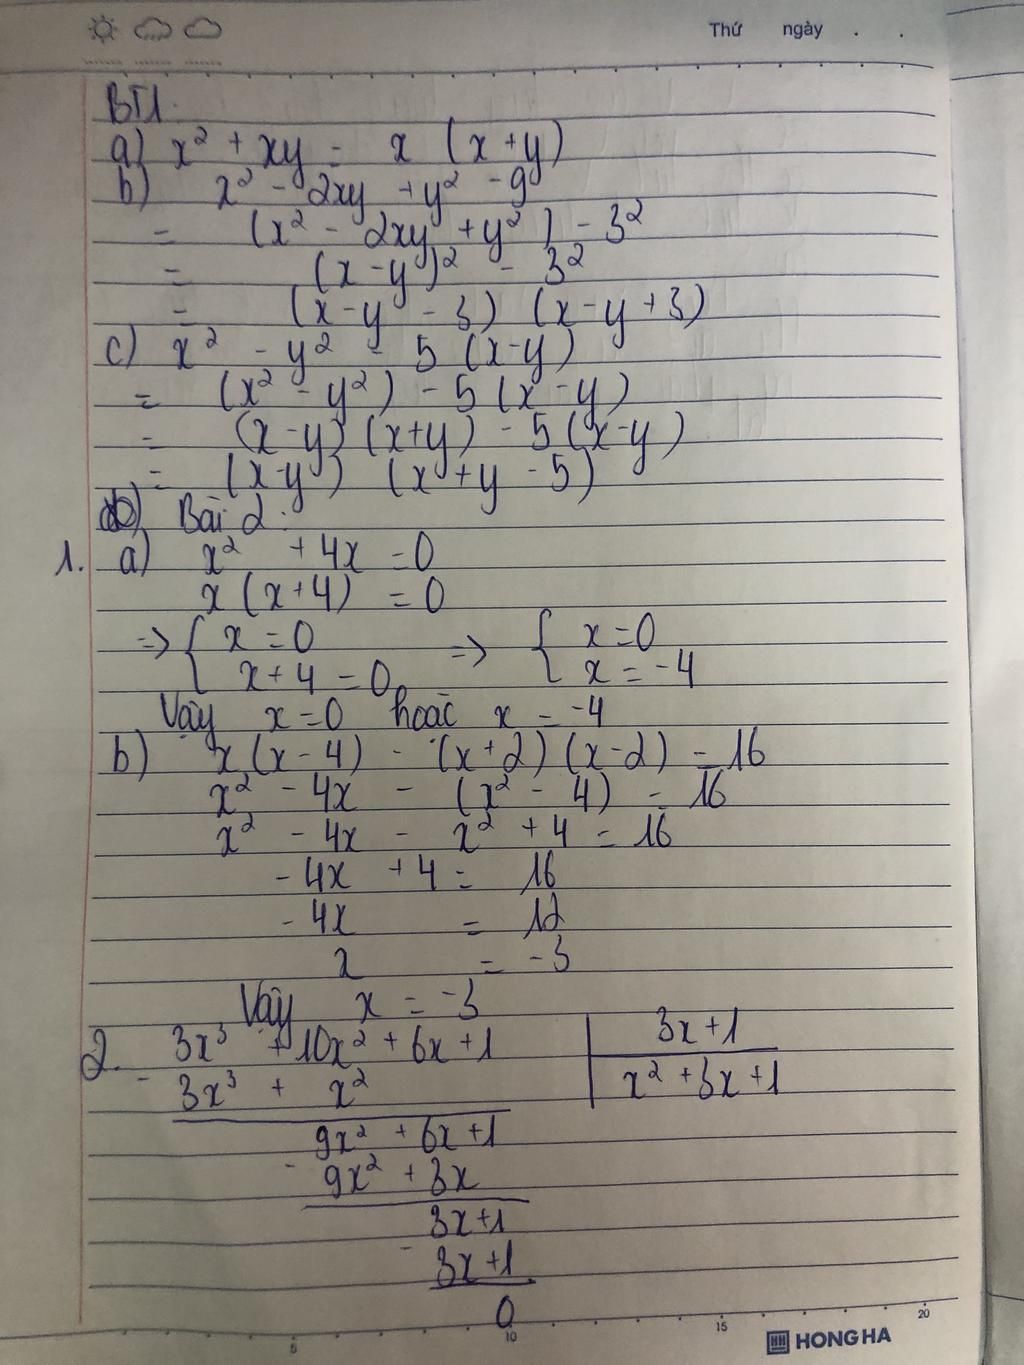 Thứ ngày . .
BT1.
a) x² + xy = x (x+y)
b) x² - 2xy + y² - 9
= (x² - 2xy + y²) - 3²
= (x-y)² - 3²
= (x-y - 3) (x-y+3)
c) x² - y² - 5 (x-y)
= (x² - y²) - 5 (x-y)
= (x-y) (x+y) - 5(x-y)
= (x-y) (x+y - 5)
Bài 2:
1. a) x² + 4x = 0
x (x+4) = 0
=> { x = 0 => { x = 0
x+4 = 0 x = -4
Vậy x = 0 hoặc x = -4
b) x(x-4) - (x+2)(x-2) = 16
x² - 4x - (x² - 4) = 16
x² - 4x - x² + 4 = 16
-4x + 4 = 16
-4x = 12
x = -3
Vậy x = -3
2. 3x³ + 10x² + 6x + 1 | 3x+1
- 3x³ + x² | x² + 3x + 1
9x² + 6x + 1
- 9x² + 3x
3x+1
- 3x+1
0
5 10 15 20
HONG HA